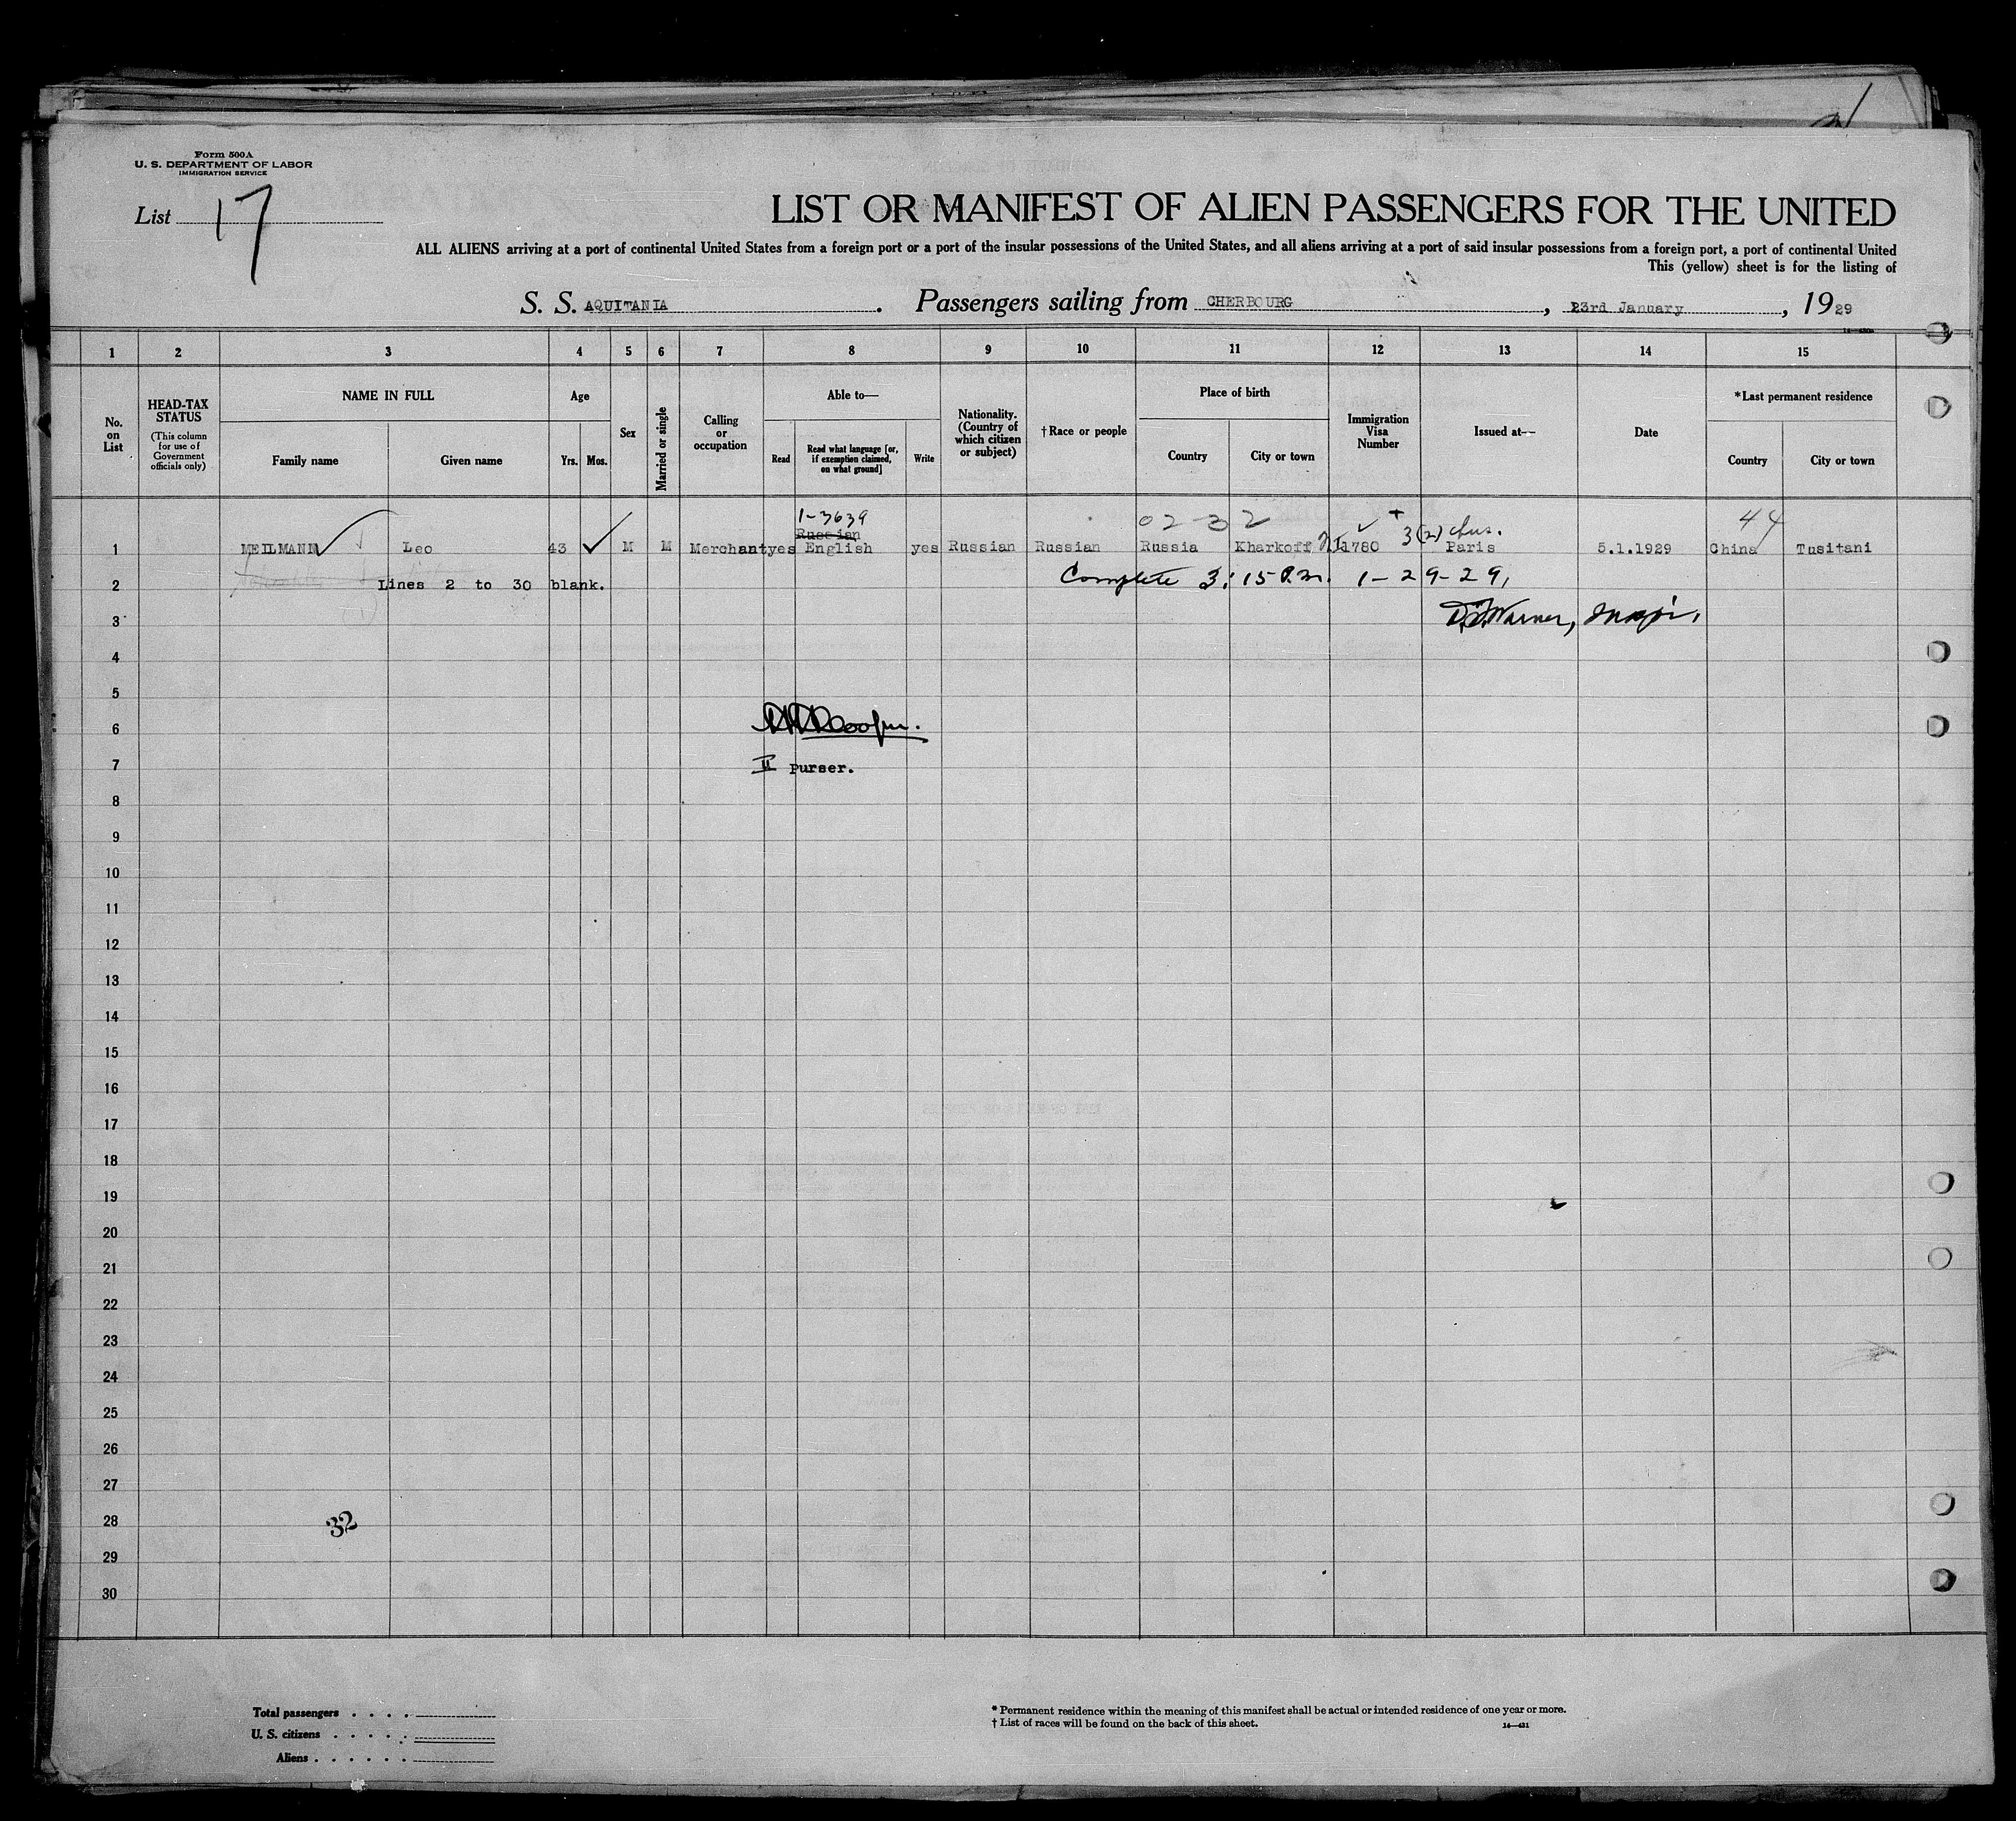 Form 500A
U. S. DEPARTMENT OF LABOR
IMMIGRATION SERVICE
List 17
LIST OR MANIFEST OF ALIEN PASSENGERS FOR THE UNITED
ALL ALIENS arriving at a port of continental United States from a foreign port or a port of the insular possessions of the United States, and all aliens arriving at a port of said insular possessions from a foreign port, a port of continental United
This (yellow) sheet is for the listing of
S. S. AQUITANIA. Passengers sailing from CHERBOURG, 23rd January, 1929
1 2 3 4 5 6 7 8 9 10 11 12 13 14 15
No. on List
HEAD-TAX STATUS
(This column for use of Government officials only)
NAME IN FULL
Family name
Given name
Age
Yrs. Mos.
Sex
Married or single
Calling or occupation
Able to—
Read
Read what language [or, if exemption claimed, on what ground]
Write
Nationality. (Country of which citizen or subject)
†Race or people
Place of birth
Country
City or town
Immigration Visa Number
Issued at—
Date
*Last permanent residence
Country
City or town
1-3639
Russian
02-32
3(2)
44
1 MEILMANN Leo 43 M M Merchant yes English yes Russian Russian Russia Kharkoff 1780 Paris 5.1.1929 China Tusitani
2 Lines 2 to 30 blank. Complete 3:15 P.m. 1-29-29,
3 Warner, Inspr.
4
5
6 Cooper.
7 II purser.
8
9
10
11
12
13
14
15
16
17
18
19
20
21
22
23
24
25
26
27
28 32
29
30
Total passengers . . . .
U. S. citizens . . . . .
Aliens . . . . . .
* Permanent residence within the meaning of this manifest shall be actual or intended residence of one year or more.
† List of races will be found on the back of this sheet.
14—431